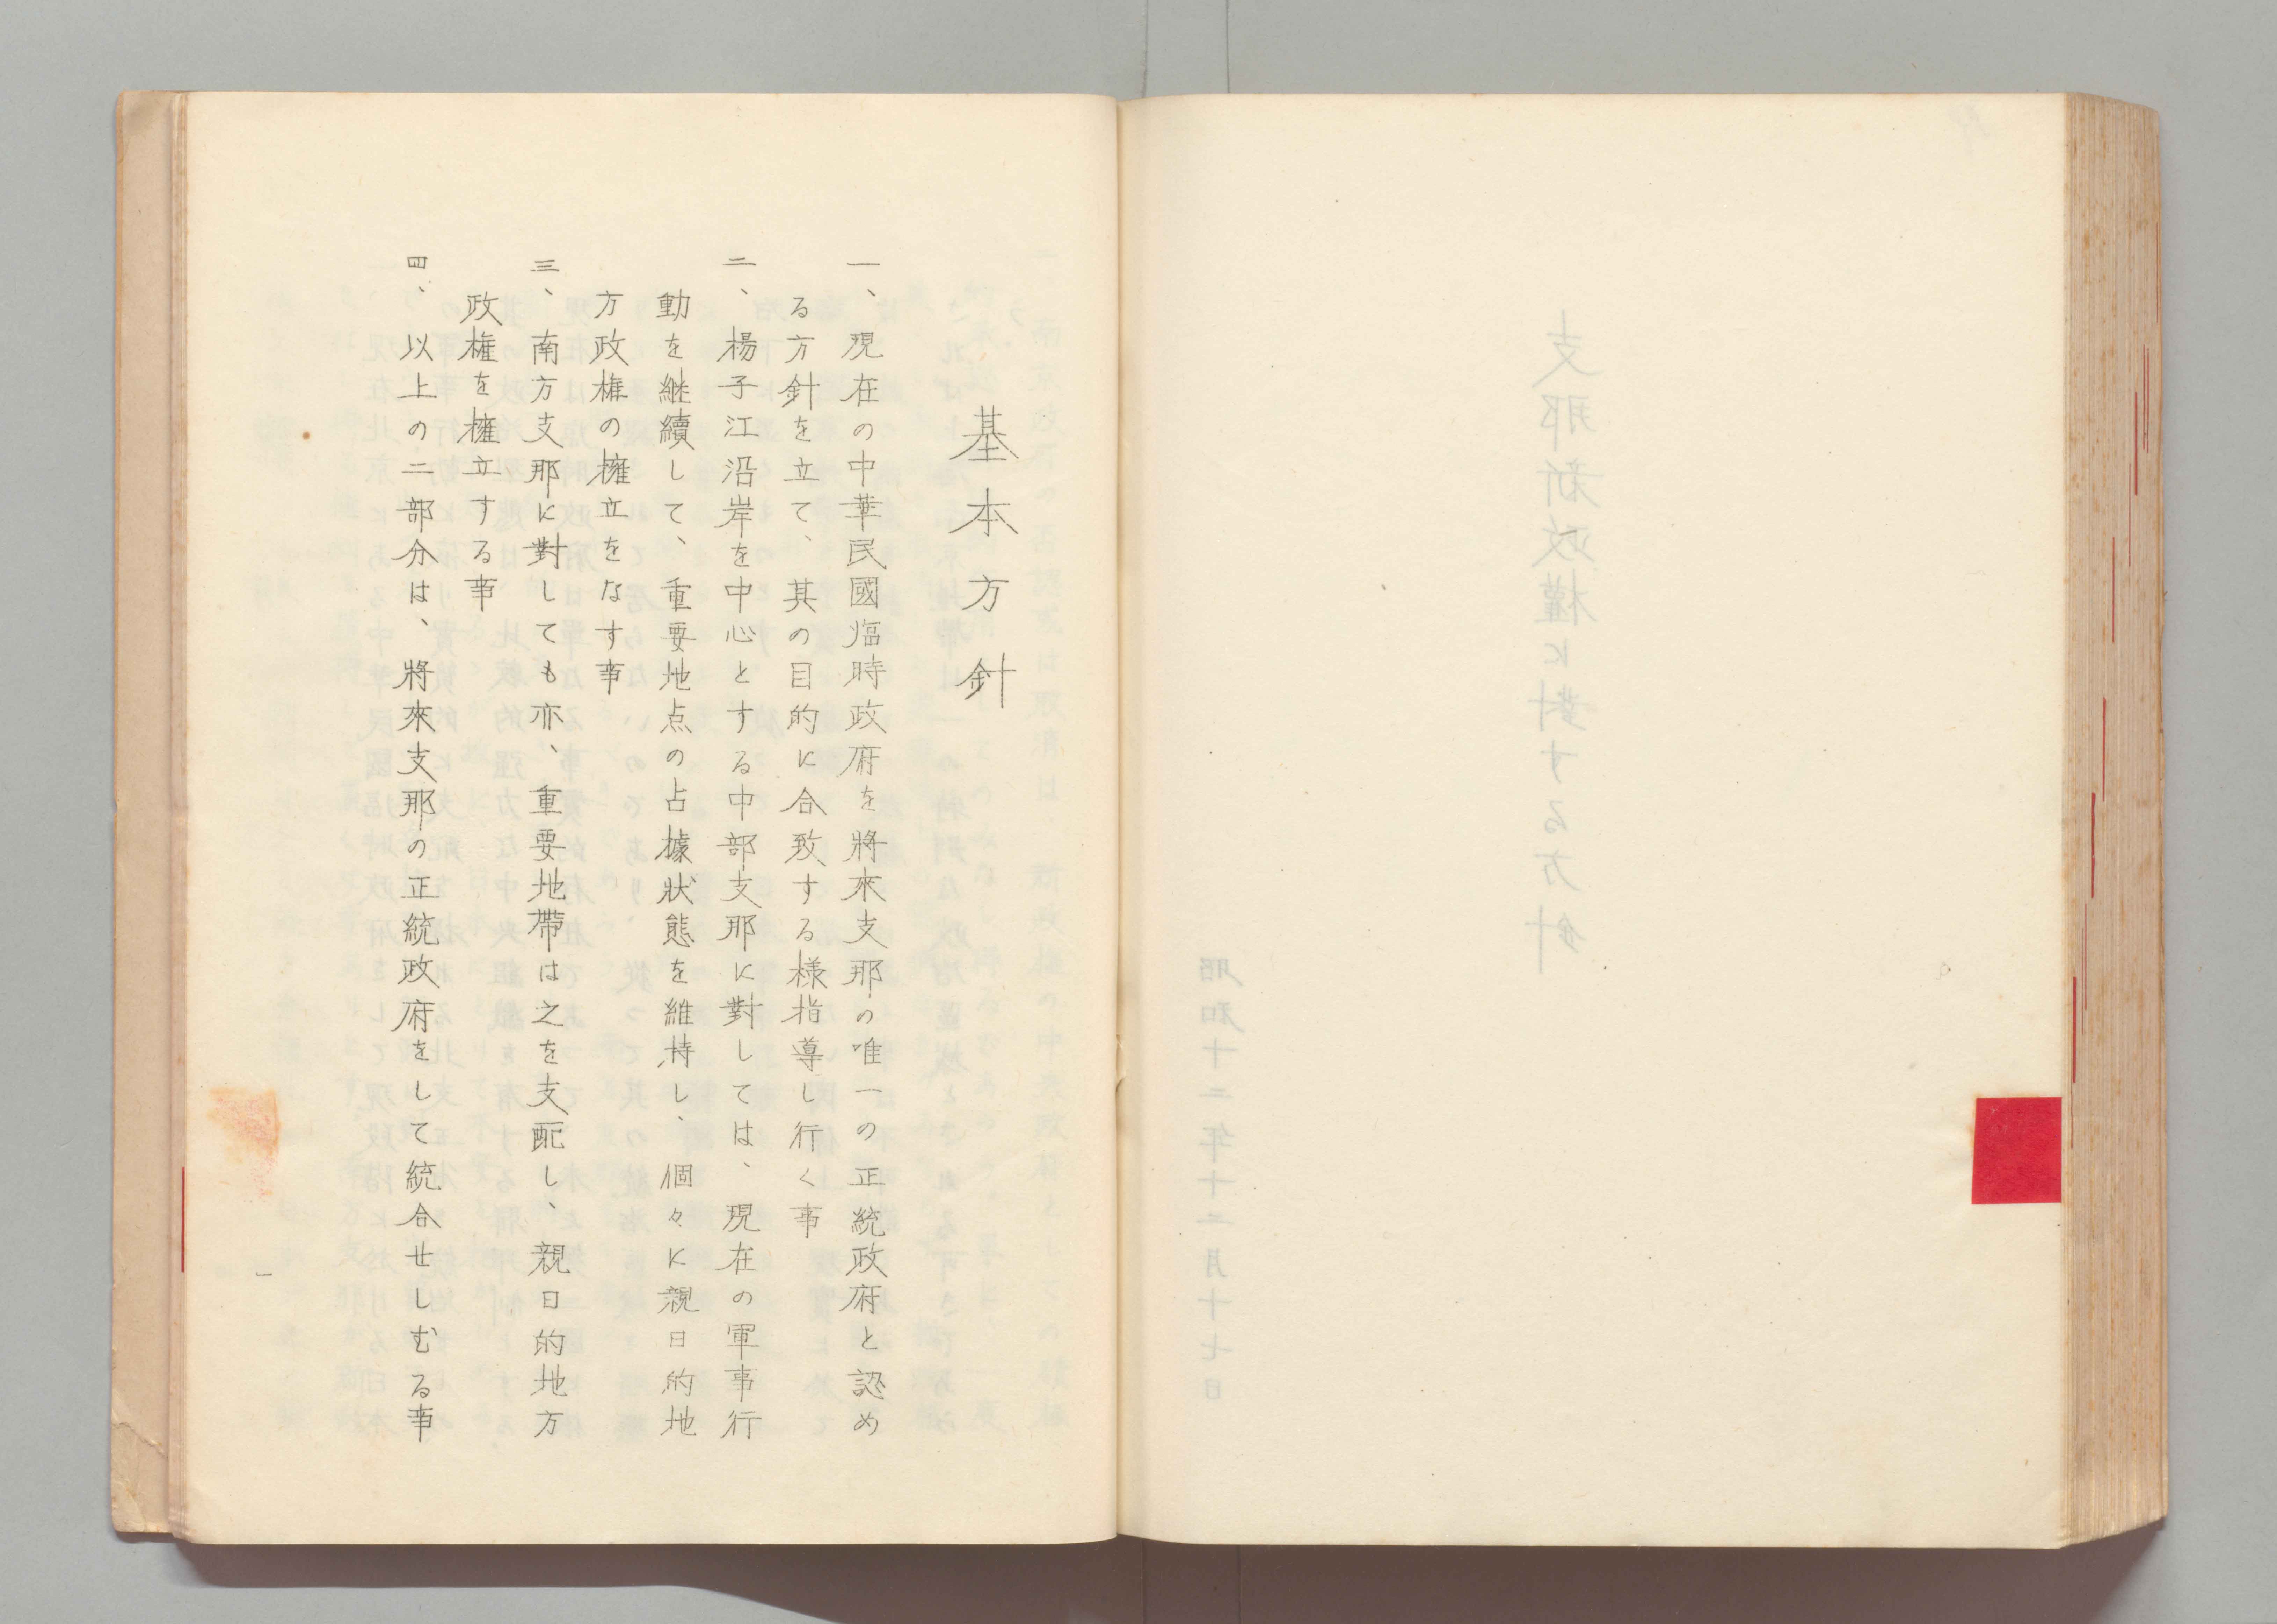 支那新政權に對する方針
昭和十二年十二月十七日
基本方針
一、現在の中華民國臨時政府を將來支那の唯一の正統政府と認め
る方針を立て、其の目的に合致する樣指導し行く事
二、楊子江沿岸を中心とする中部支那に對しては、現在の軍事行
動を継續して、重要地点の占據狀態を維持し、個々に親日的地
方政権の擁立をなす事
三、南方支那に對しても亦、重要地帶は之を支配し、親日的地方
政権を擁立する事
四、以上の二部分は、將來支那の正統政府をして統合せしむる事
一